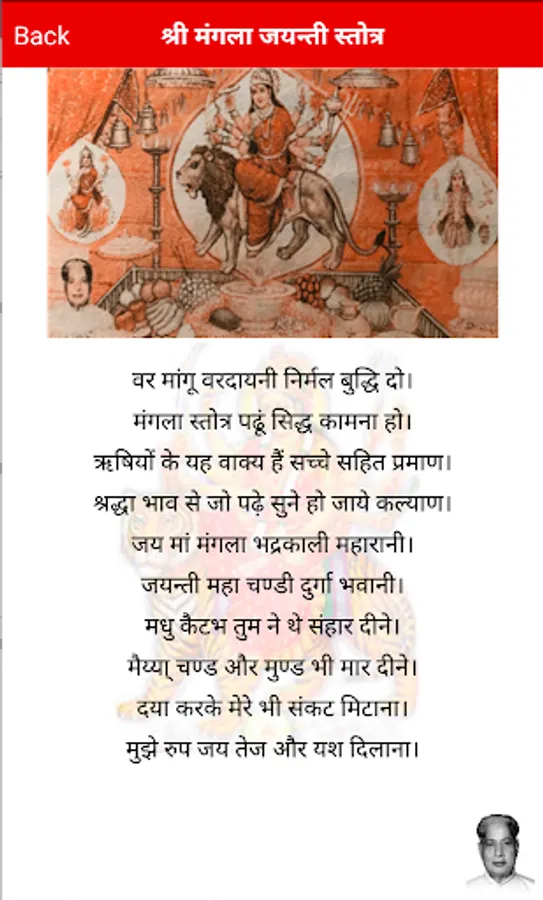 Back
श्री मंगला जयन्ती स्तोत्र
वर मांगू वरदायनी निर्मल बुद्धि दो।
मंगला स्तोत्र पढूं सिद्ध कामना हो।
ऋषियों के यह वाक्य हैं सच्चे सहित प्रमाण।
श्रद्धा भाव से जो पढ़े सुने हो जाये कल्याण।
जय मां मंगला भद्रकाली महारानी।
जयन्ती महा चण्डी दुर्गा भवानी।
मधु कैटभ तुम ने थे संहार दीने।
मैय्या् चण्ड और मुण्ड भी मार दीने।
दया करके मेरे भी संकट मिटाना।
मुझे रुप जय तेज और यश दिलाना।